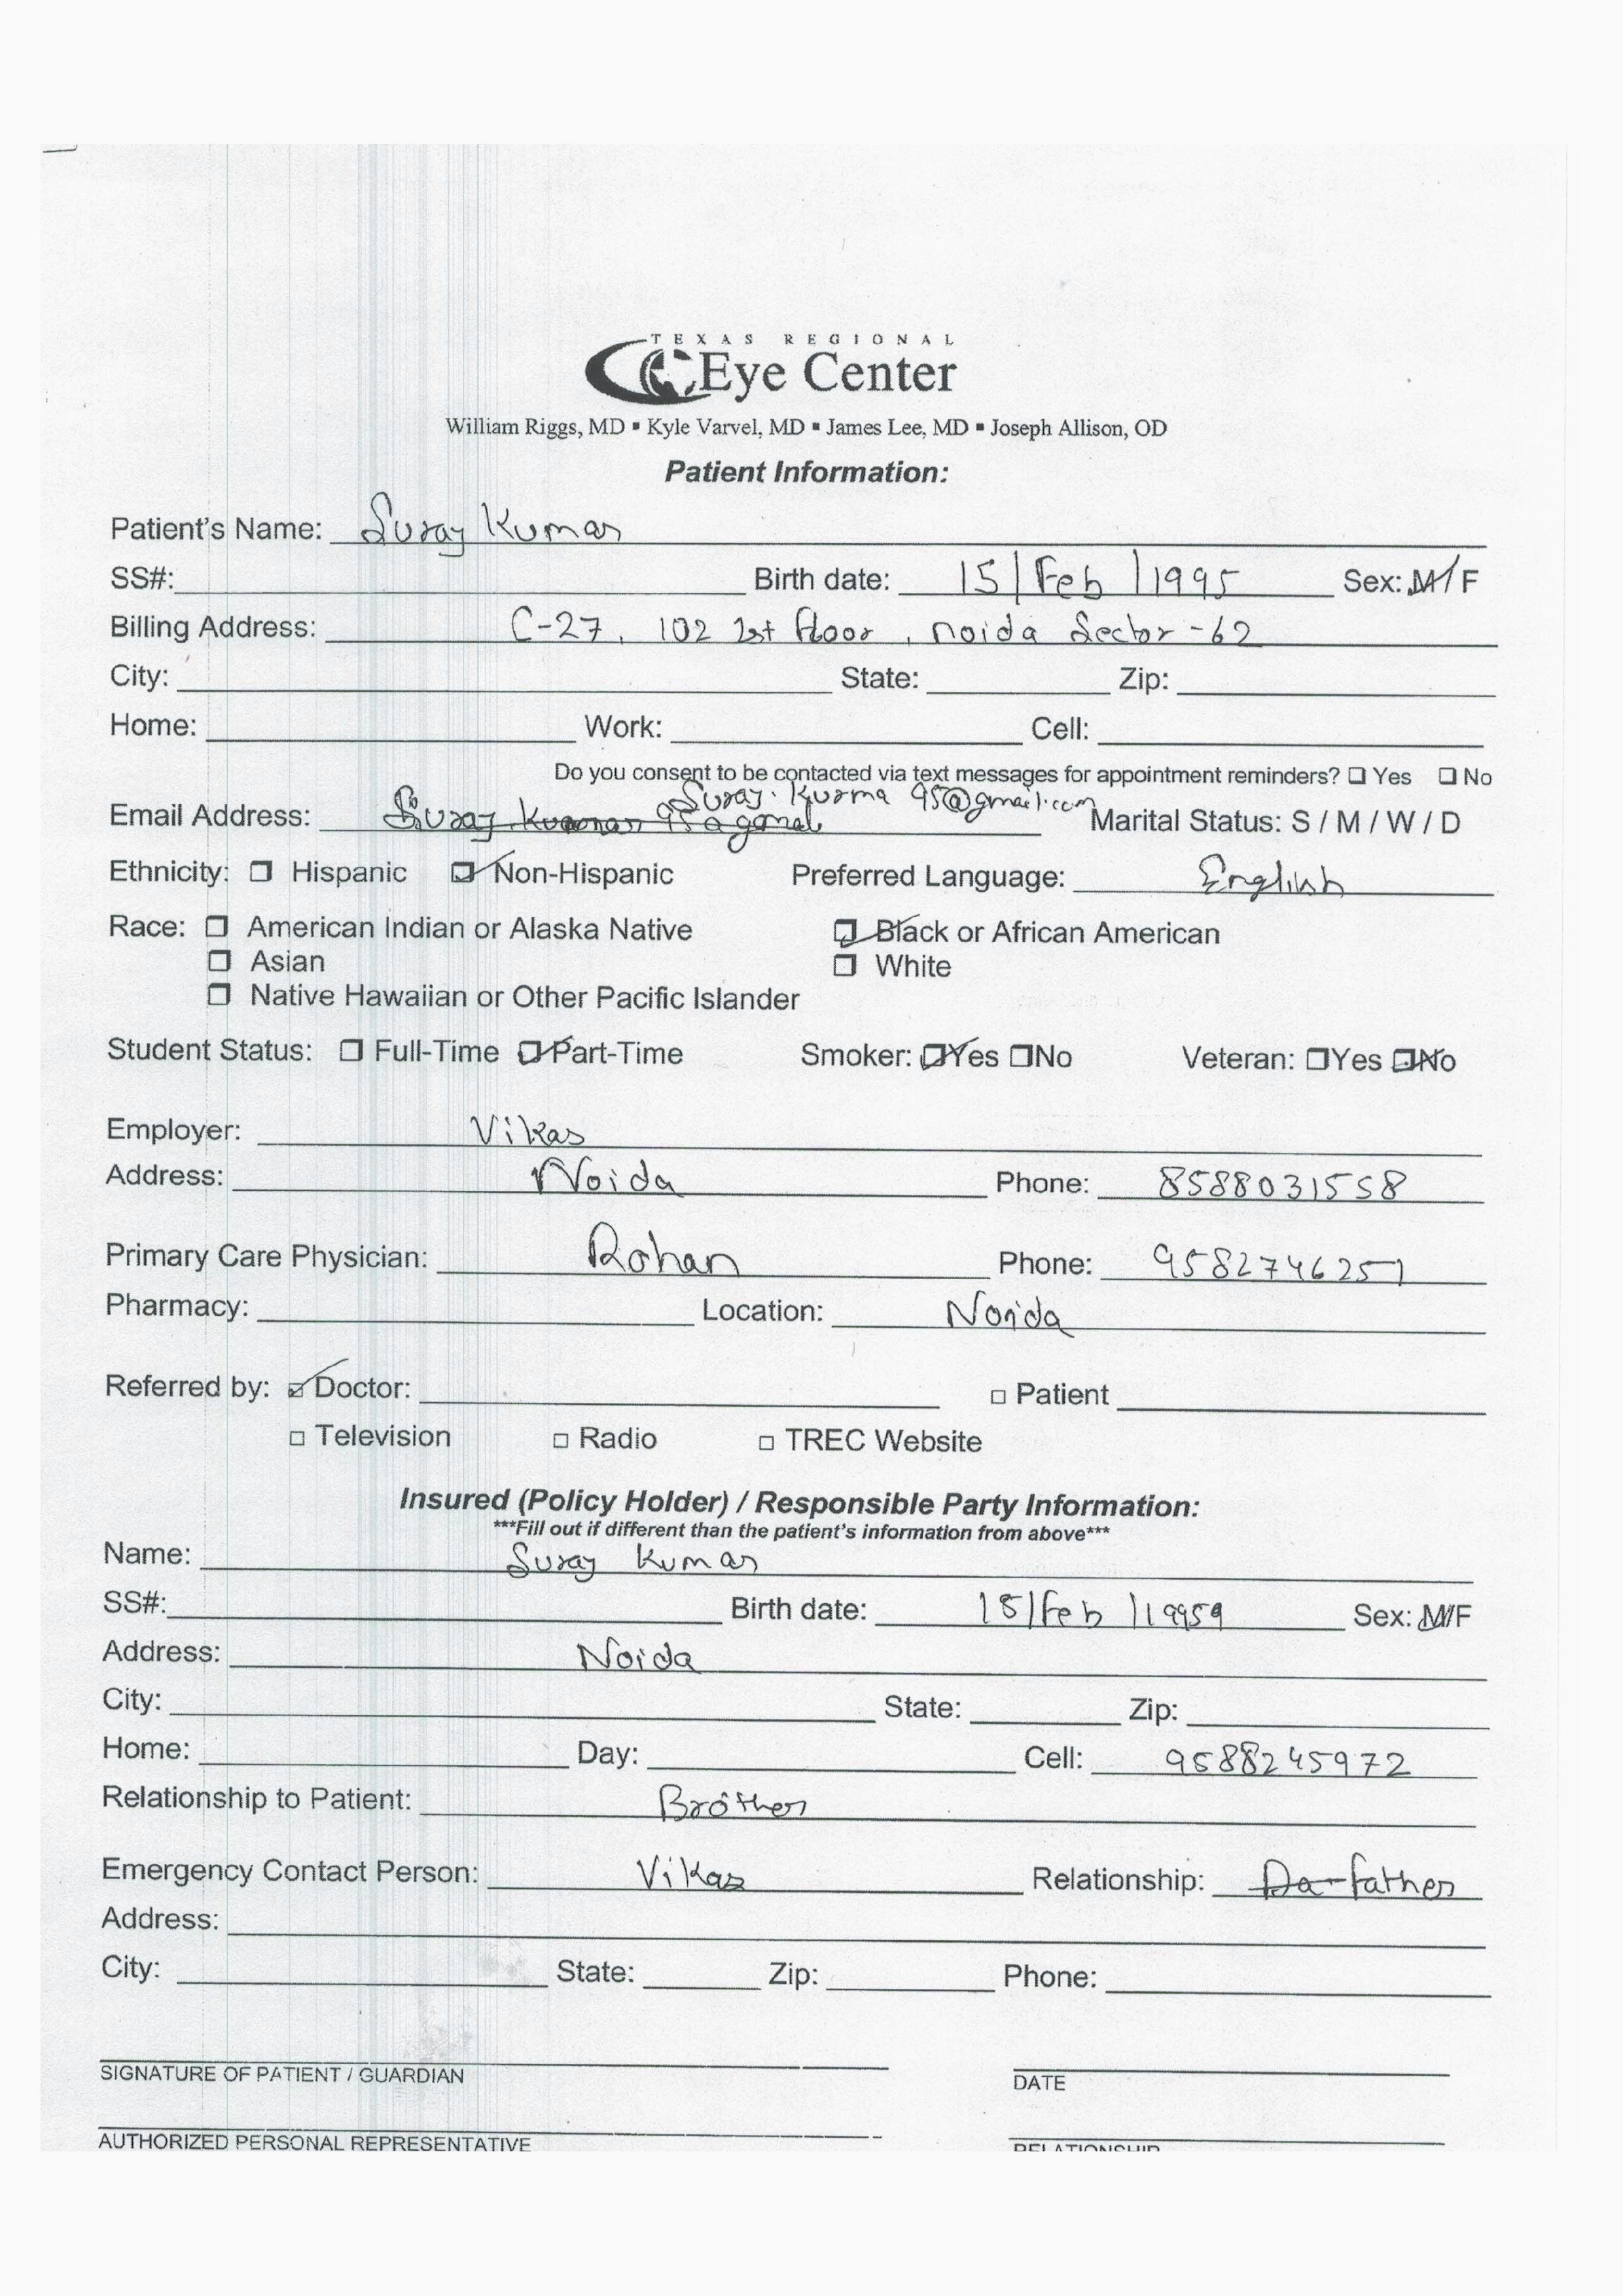 TEXAS REGIONAL
Eye Center
William Riggs, MD ▪ Kyle Varvel, MD ▪ James Lee, MD ▪ Joseph Allison, OD
Patient Information:
Patient's Name: Suraj Kumar
SS#: Birth date: 15/Feb/1995 Sex: M/F
Billing Address: C-27, 102 1st floor, noida Sector-62
City: State: Zip:
Home: Work: Cell:
Do you consent to be contacted via text messages for appointment reminders? ☐ Yes ☐ No
Suraj.Kurma 95@gmail.com
Email Address: Marital Status: S / M / W / D
Ethnicity: ☐ Hispanic ☑ Non-Hispanic Preferred Language: English
Race: ☐ American Indian or Alaska Native ☑ Black or African American
☐ Asian ☐ White
☐ Native Hawaiian or Other Pacific Islander
Student Status: ☐ Full-Time ☑ Part-Time Smoker: ☑Yes ☐No Veteran: ☐Yes ☑No
Employer: Vikas
Address: Noida Phone: 8588031558
Primary Care Physician: Rohan Phone: 9582746251
Pharmacy: Location: Noida
Referred by: ☑ Doctor: ☐ Patient
☐ Television ☐ Radio ☐ TREC Website
Insured (Policy Holder) / Responsible Party Information:
***Fill out if different than the patient's information from above***
Name: Suraj Kumar
SS#: Birth date: 15/Feb/19959 Sex: M/F
Address: Noida
City: State: Zip:
Home: Day: Cell: 9588245972
Relationship to Patient: Brother
Emergency Contact Person: Vikas Relationship: Da father
Address:
City: State: Zip: Phone:
SIGNATURE OF PATIENT / GUARDIAN DATE
AUTHORIZED PERSONAL REPRESENTATIVE RELATIONSHIP